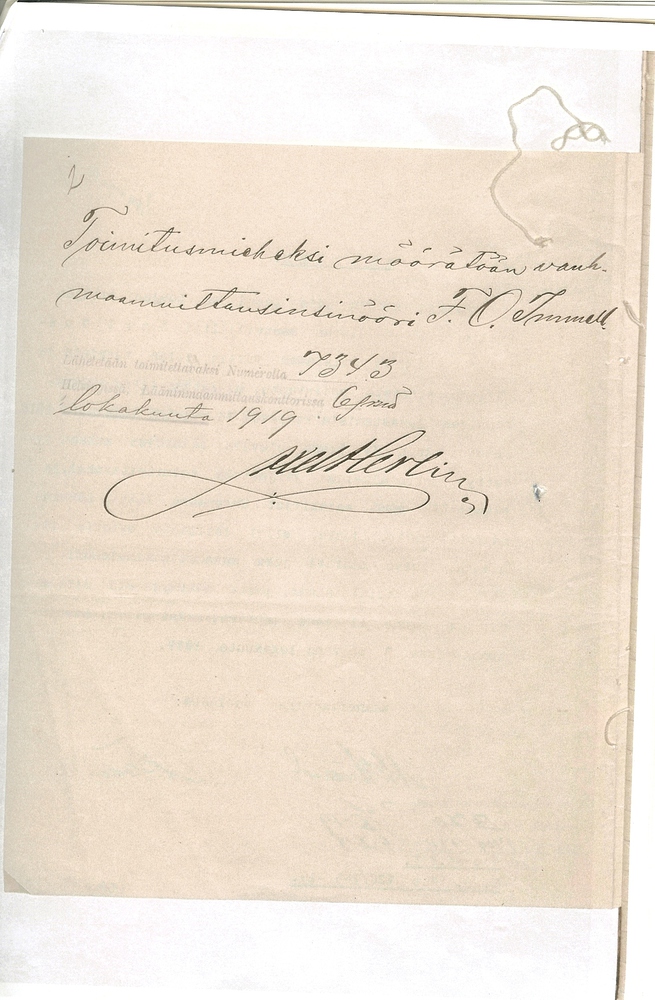 Toimitusmieheksi määrätään vanh.
maanmittausinsinööri F. O. Immell.
Lähetetään toimitettavaksi Numerolla 7343
Helsingissä, Lääninmaanmittauskonttorissa 6 p:nä
lokakuuta 1919.
Axel Herlin